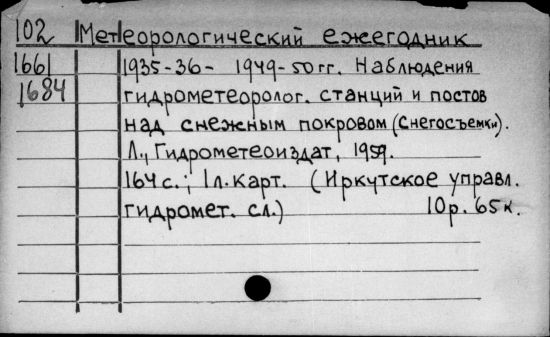 102 Метеорологический ежегодник
1661 1935-36- 1949-50гг. Наблюдения
1684 гидрометеоролог. станций и постов
над снежным покровом (снегосъемки).
Л., Гидрометеоиздат, 1959.
164с.; 1л. карт. (Иркутское управл.
гидромет. сл.) 10р. 65к.